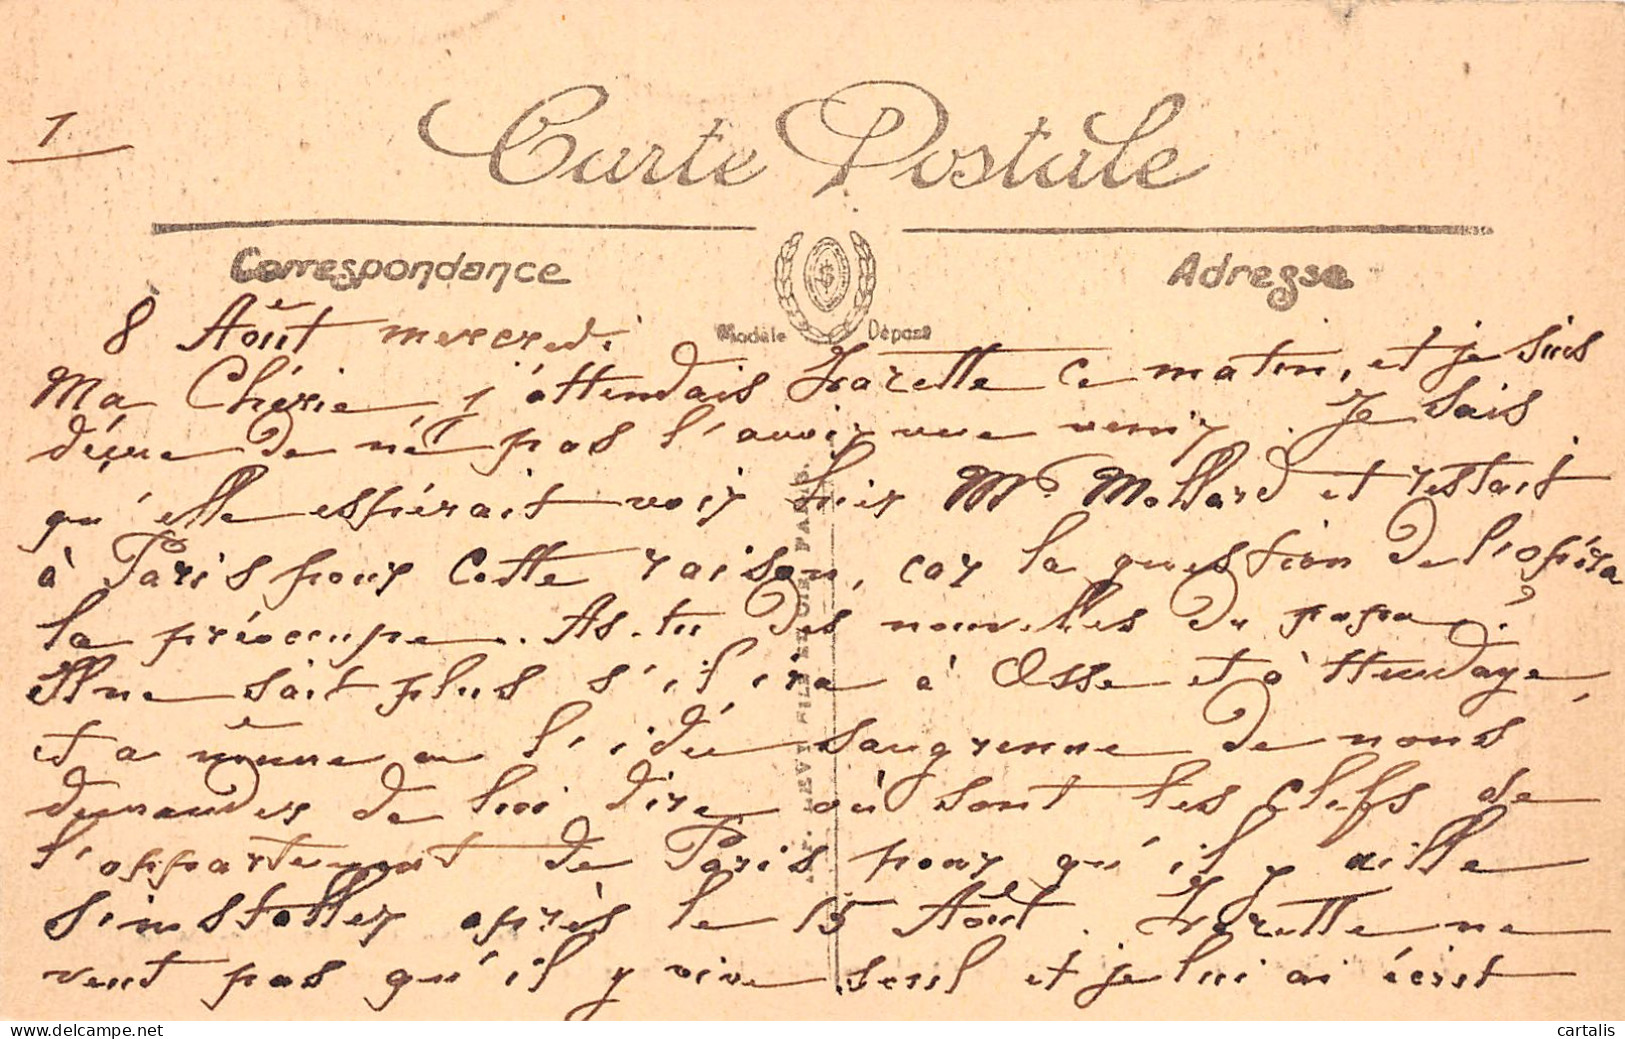 1
Carte Postale
Correspondance
Adresse
Modèle Déposé
8 Août mercredi
Ma Chérie, j'attendais Zazette ce matin, et je suis
déçue de ne pas l'avoir vue venir. Je sais
qu'elle espérait voir hier Mr. Mollard et restait
à Paris pour cette raison, car la question de l'opéra
la préoccupe. As-tu des nouvelles du papa ?
Il ne sait plus s'il ira à Osse et à Hendaye,
et a même eu l'idée saugrenue de nous
demander de lui dire où sont les clefs de
l'appartement de Paris pour qu'il y aille
s'installer après le 15 Août. Zazette ne
veut pas qu'il y vive seul et je lui ai écrit
cartalis